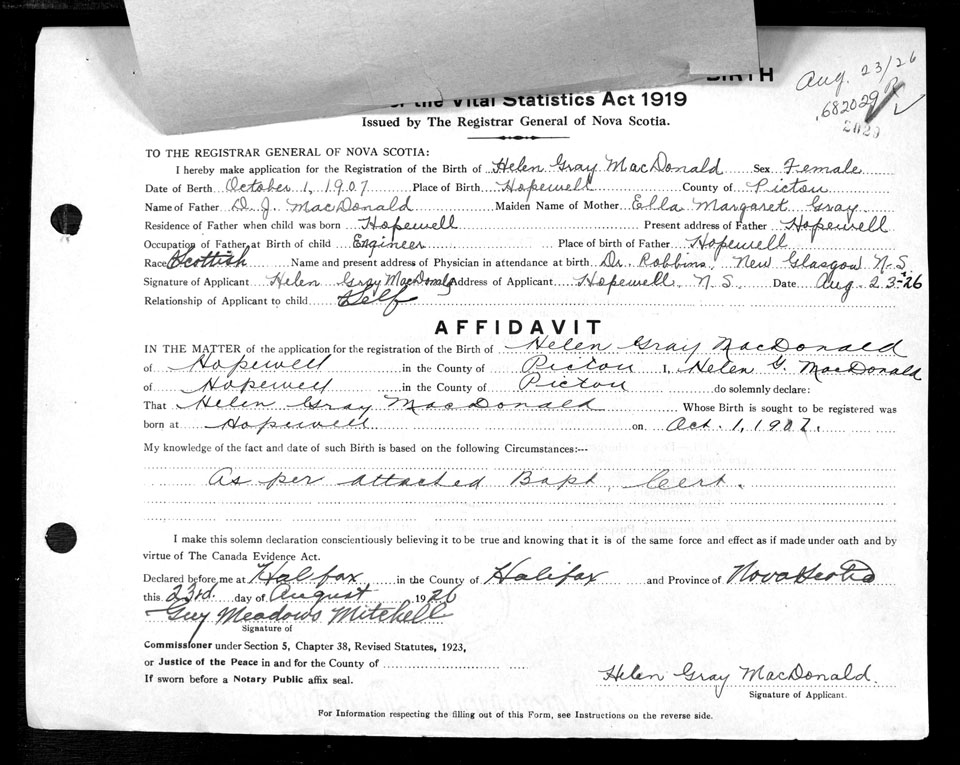 BIRTH
the Vital Statistics Act 1919
Issued by The Registrar General of Nova Scotia.
Aug. 23/26
682029
2029
TO THE REGISTRAR GENERAL OF NOVA SCOTIA:
I hereby make application for the Registration of the Birth of Helen Gray MacDonald Sex Female
Date of Berth October 1, 1907 Place of Birth Hopewell County of Pictou
Name of Father D. J. MacDonald Maiden Name of Mother Ella Margaret Gray
Residence of Father when child was born Hopewell Present address of Father Hopewell
Occupation of Father at Birth of child Engineer Place of birth of Father Hopewell
Race Scottish Name and present address of Physician in attendance at birth Dr. Robbins, New Glasgow N.S.
Signature of Applicant Helen Gray MacDonald Address of Applicant Hopewell N.S. Date Aug 23-26
Relationship of Applicant to child Self
AFFIDAVIT
IN THE MATTER of the application for the registration of the Birth of Helen Gray MacDonald
of Hopewell in the County of Pictou I, Helen G. MacDonald
of Hopewell in the County of Pictou do solemnly declare:
That Helen Gray MacDonald Whose Birth is sought to be registered was
born at Hopewell on Oct. 1, 1907.
My knowledge of the fact and date of such Birth is based on the following Circumstances:--
As per attached Bapt. Cert.
I make this solemn declaration conscientiously believing it to be true and knowing that it is of the same force and effect as if made under oath and by
virtue of The Canada Evidence Act.
Declared before me at Halifax in the County of Halifax and Province of Nova Scotia
this 23rd. day of August 1926
Guy Meadows Mitchell
Signature of
Commissioner under Section 5, Chapter 38, Revised Statutes, 1923,
or Justice of the Peace in and for the County of
If sworn before a Notary Public affix seal.
Helen Gray MacDonald.
Signature of Applicant.
For Information respecting the filling out of this Form, see Instructions on the reverse side.